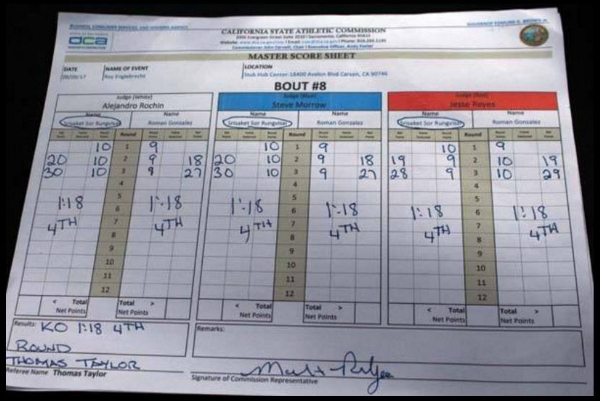 BUSINESS, CONSUMER SERVICES, AND HOUSING AGENCY
GOVERNOR EDMUND G. BROWN JR.
CALIFORNIA STATE ATHLETIC COMMISSION
dca
MASTER SCORE SHEET
DATE NAME OF EVENT LOCATION
09/09/17 Roy Englebrecht Stub Hub Center 18400 Avalon Blvd Carson, CA 90746
BOUT #8
Judge (White) Judge (Blue) Judge (Red)
Alejandro Rochin Steve Morrow Jesse Reyes
Name Name Name Name Name Name
Srisaket Sor Rungvisai Roman Gonzalez Srisaket Sor Rungvisai Roman Gonzalez Srisaket Sor Rungvisai Roman Gonzalez
Round Round Round
10 1 9 10 1 9 10 1 9
20 10 2 9 18 20 10 2 9 18 19 9 2 10 19
30 10 3 9 27 30 10 3 9 27 28 9 3 10 29
4 4 4
5 5 5
1:18 6 1:18 1:18 6 1:18 1:18 6 1:18
4TH 7 4TH 4TH 7 4TH 4TH 7 4TH
8 8 8
9 9 9
10 10 10
11 11 11
12 12 12
< Total Total > < Total Total > < Total Total >
Net Points Net Points Net Points Net Points Net Points Net Points
Results: KO 1:18 4TH
ROUND
THOMAS TAYLOR
Referee Name Thomas Taylor
Remarks:
Signature of Commission Representative